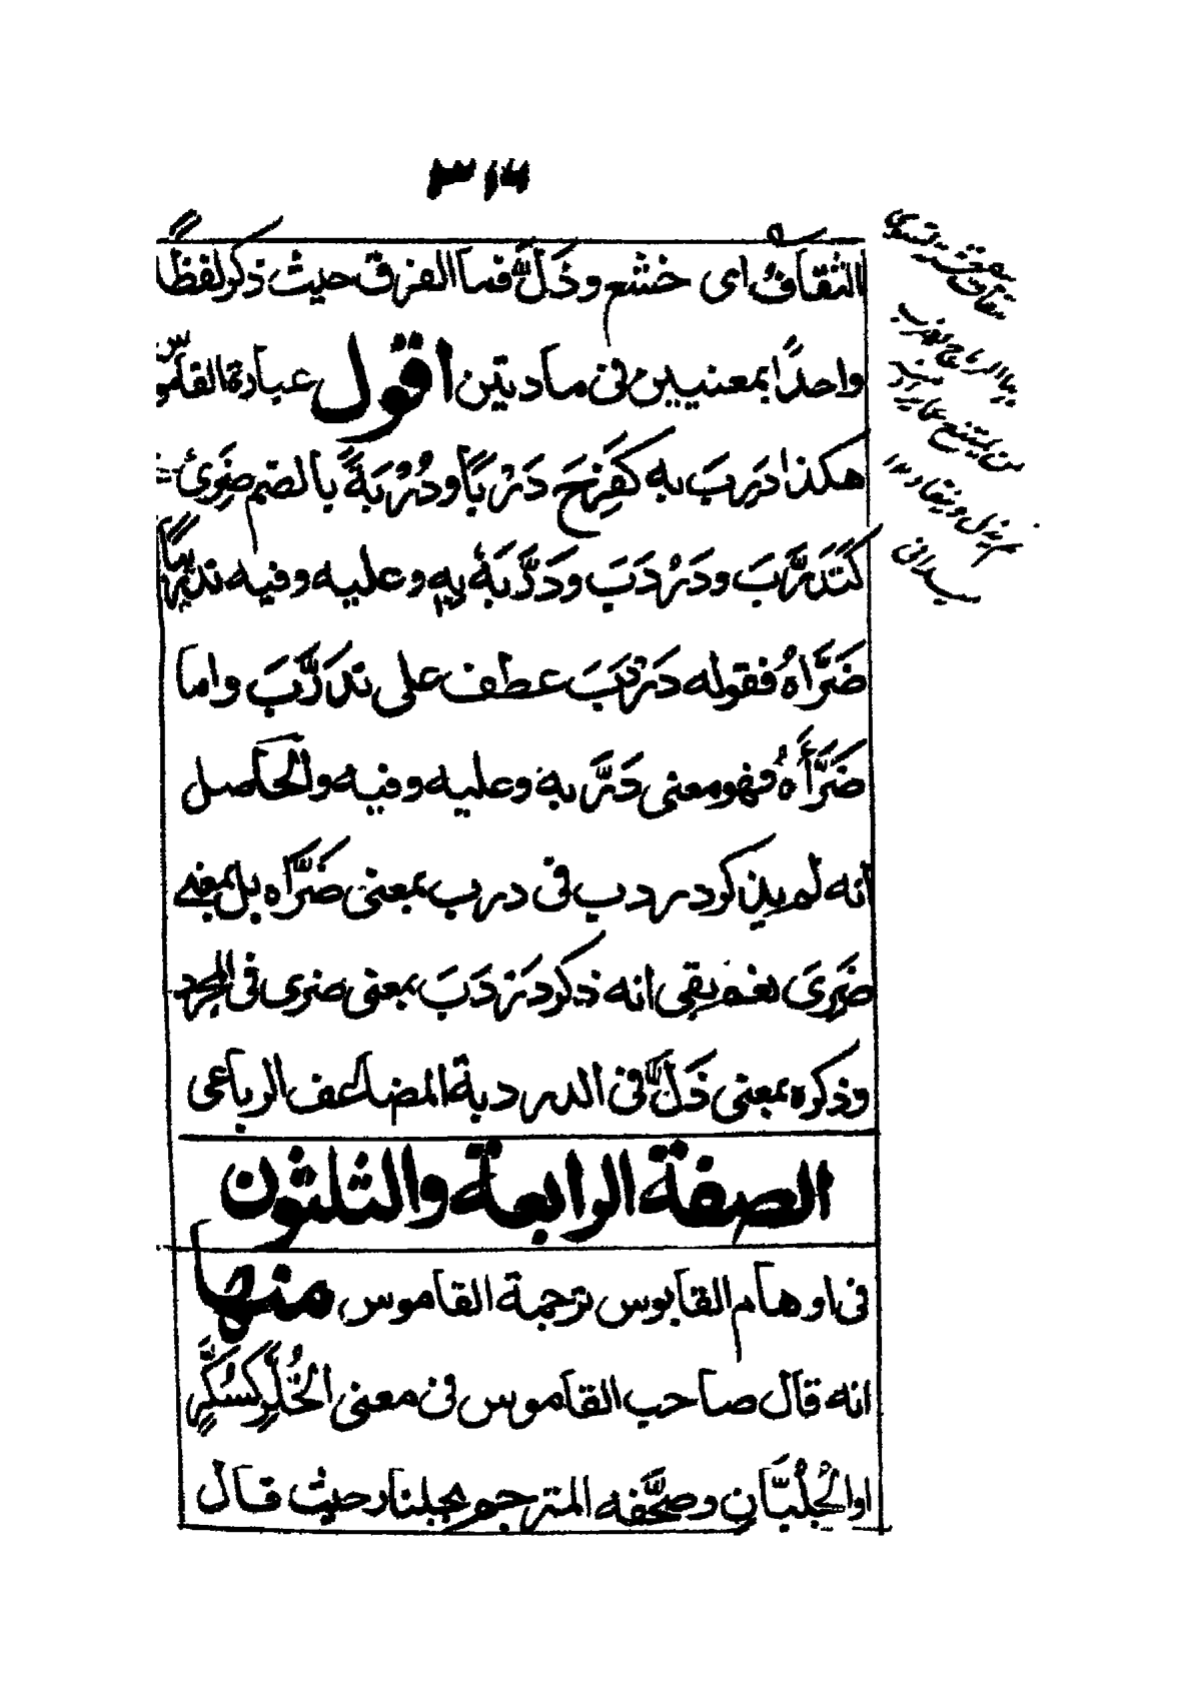 ٣١٤
الثقافُ اى خشع وذَلَّ فما الفرق حيث ذكر لفظًا
واحدًا بمعنيين فى مادتين اقول عبارة القاموس
هكذا دَرِبَ به كفَرِحَ دَرَبًا ودُرْبَةً بالضم ضَرِىَ
كَتَدَرَّبَ ودَرْدَبَ ودَرَّبَهُ بِهِ وعليه وفيه تدريبًا
ضَرَّاهُ فقوله دَرْدَبَ عطف على تَدَرَّبَ واما
ضَرَّأَهُ فهو معنى دَرَّبه وعليه وفيه والحاصل
انه لم يذكر دردب فى درب بمعنى ضَرَّاه بل بمعنى
ضَرِىَ نعم بقى انه ذكر دَرْدَبَ بمعنى ضرى فى المجرد
وذكره بمعنى ذَلَّ فى الدردبة المضاعف الرباعى
الصفة الرابعة والثلثون
فى اوهام القابوس ترجمة القاموس منها
انه قال صاحب القاموس فى معنى الخُلَّرِ كسُكَّرٍ
او الجُلُبَّانِ وصحَّفه المترجم بجلنار حيث قال